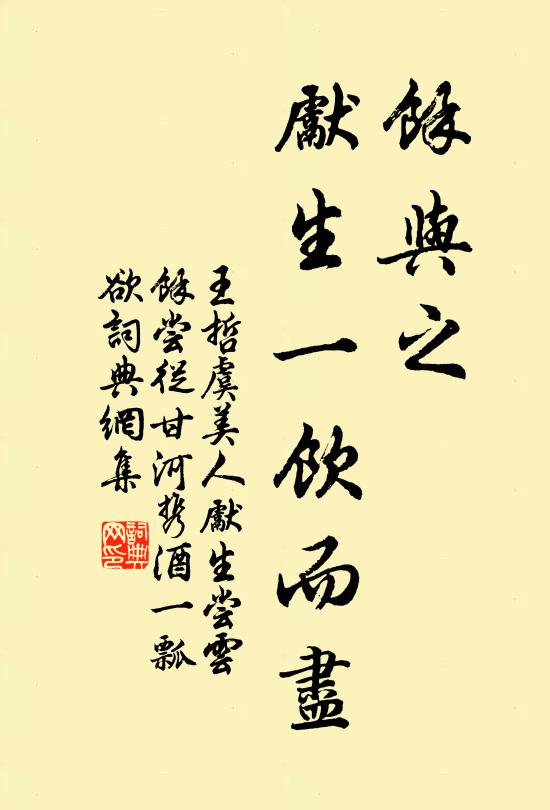 餘與之
獻生一飲而盡
王哲虞美人獻生尝雲
餘尝從甘河携酒一瓢
欲詞典網集
詞典网印